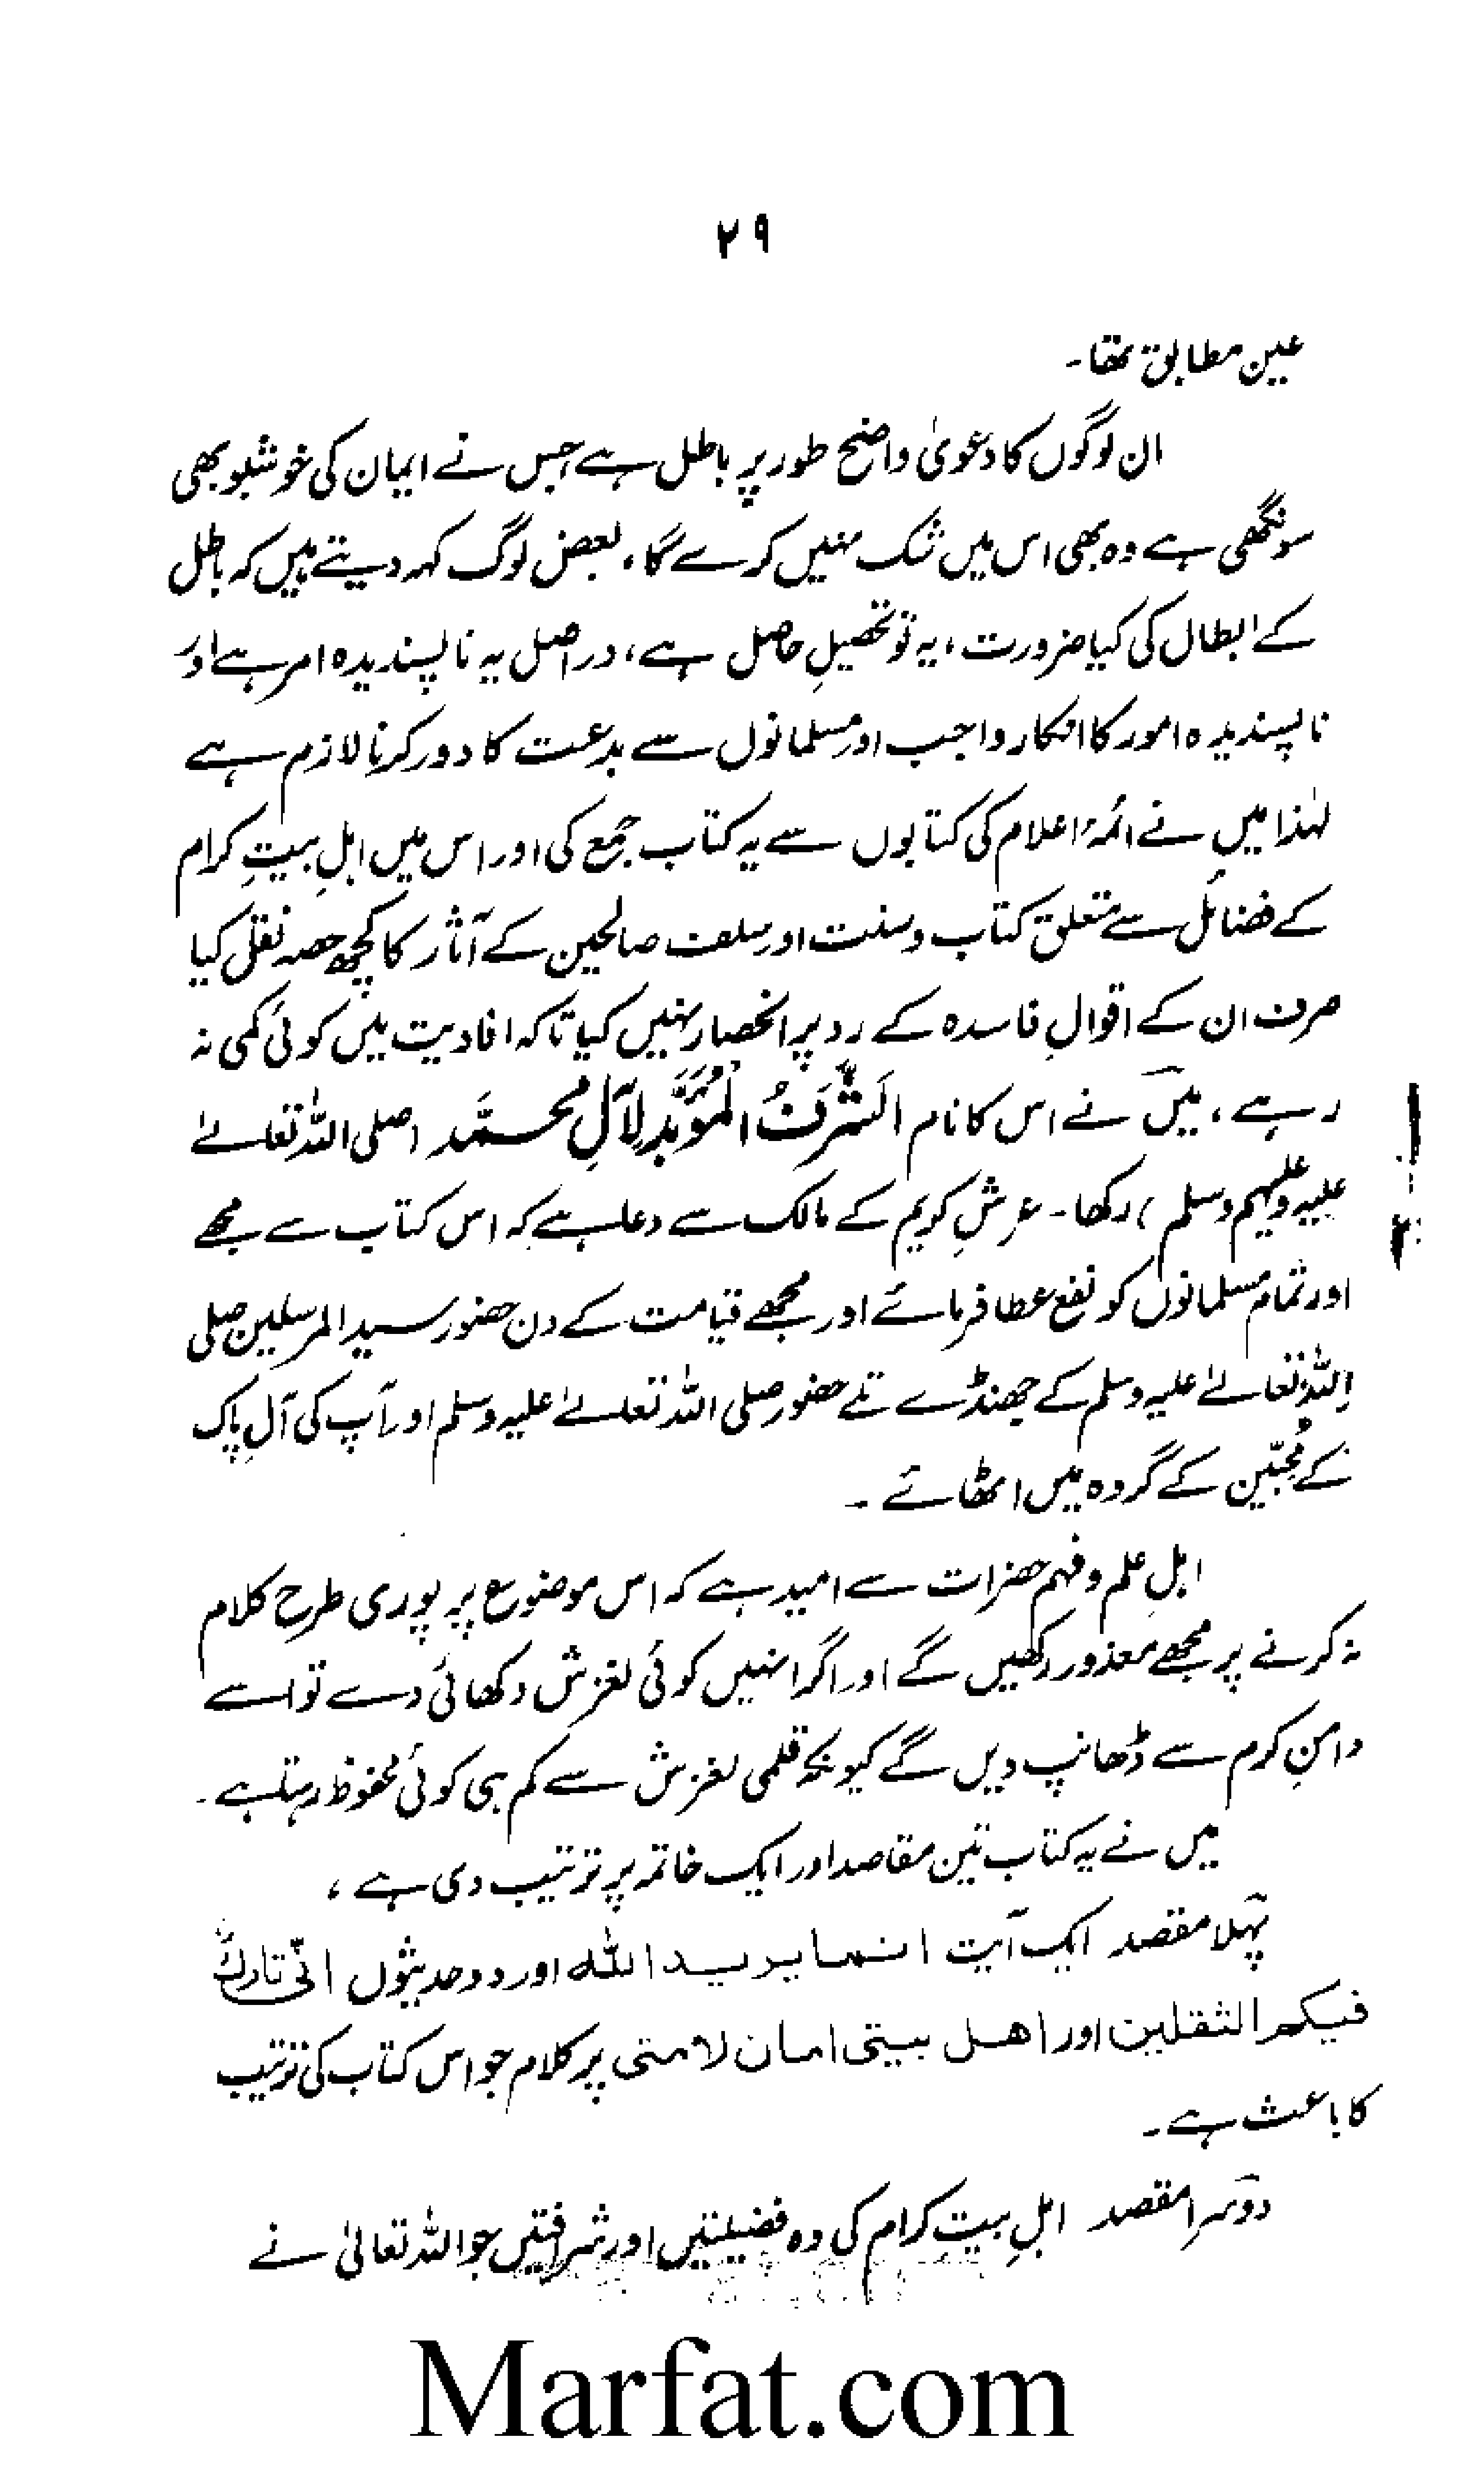 ۲۹
عین مطابق تھا۔
ان لوگوں کا دعویٰ واضح طور پر باطل ہے جس نے ایمان کی خوشبو بھی
سونگھی ہے وہ بھی اس میں شک نہیں کرے گا، بعض لوگ کہہ دیتے ہیں کہ باطل
کے ابطال کی کیا ضرورت، یہ تو تحصیلِ حاصل ہے، دراصل یہ ناپسندیدہ امر ہے اور
ناپسندیدہ امور کا انکار واجب اور مسلمانوں سے بدعت کا دور کرنا لازم ہے
لہٰذا میں نے ائمۂ اعلام کی کتابوں سے یہ کتاب جمع کی اور اس میں اہلِ بیتِ کرام
کے فضائل سے متعلق کتاب و سنت اور سلف صالحین کے آثار کا کچھ حصہ نقل کیا
صرف ان کے اقوالِ فاسدہ کے رد پر انحصار نہیں کیا تاکہ افادیت میں کوئی کمی نہ
رہے، میں نے اس کا نام اَلشَّرَفُ الْمُؤَبَّدُ لِآلِ مُحَمَّد (صلی اللہ تعالےٰ
علیہ وعلیہم وسلم) رکھا۔ عرشِ کریم کے مالک سے دعا ہے کہ اس کتاب سے مجھے
اور تمام مسلمانوں کو نفع عطا فرمائے اور مجھے قیامت کے دن حضور سید المرسلین صلی
اللہ تعالےٰ علیہ وسلم کے جھنڈے تلے حضور صلی اللہ تعالےٰ علیہ وسلم اور آپ کی آلِ پاک
کے مُحِبّین کے گروہ میں اٹھائے۔
اہلِ علم و فہم حضرات سے امید ہے کہ اس موضوع پر پوری طرح کلام
نہ کرنے پر مجھے معذور رکھیں گے اور اگر انہیں کوئی لغزش دکھائی دے تو اسے
دامنِ کرم سے ڈھانپ دیں گے کیونکہ قلمی لغزش سے کم ہی کوئی محفوظ رہتا ہے۔
میں نے یہ کتاب تین مقاصد اور ایک خاتمہ پر ترتیب دی ہے،
پہلا مقصد ایک آیت انما یرید اللہ اور دو حدیثوں انّی تارکٌ
فیکم الثقلین اور اھل بیتی امان لامتی پر کلام جو اس کتاب کی ترتیب
کا باعث ہے۔
دوسرا مقصد اہلِ بیتِ کرام کی وہ فضیلتیں اور شرافتیں جو اللہ تعالیٰ نے
Marfat.com